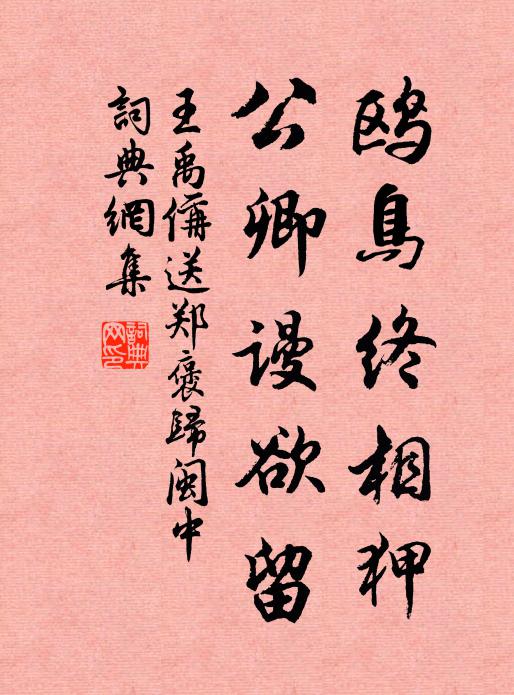 鸥鳥终相狎
公卿谩欲留
王禹偁送郑褒歸闽中
詞典網集
詞典网印